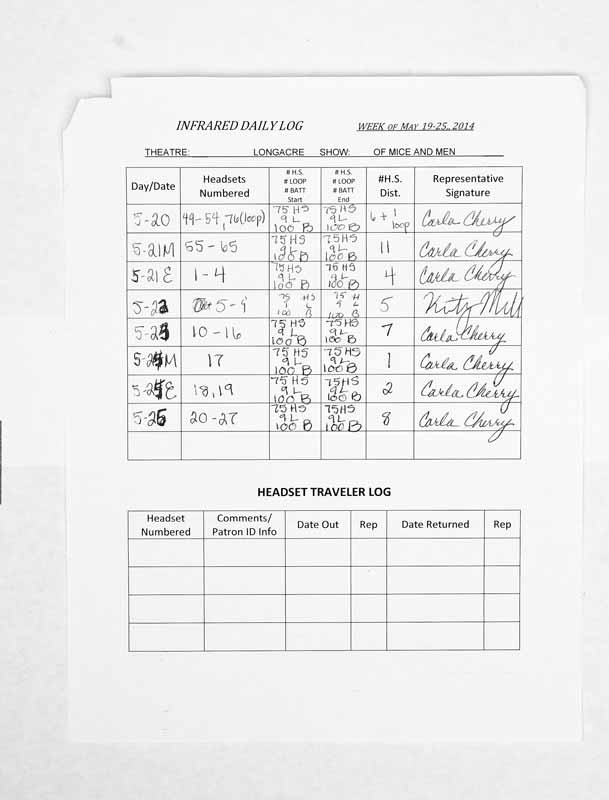 INFRARED DAILY LOG WEEK OF MAY 19-25,, 2014
THEATRE: LONGACRE SHOW: OF MICE AND MEN
Day/Date Headsets Numbered # H.S. # LOOP # BATT Start # H.S. # LOOP # BATT End #H.S. Dist. Representative Signature
5-20 49-54, 76(loop) 75 HS 9 L 100 B 75 HS 9 L 100 B 6 + 1 loop Carla Cherry
5-21M 55-65 75 HS 9 L 100 B 75 HS 9 L 100 B 11 Carla Cherry
5-21E 1-4 75 HS 9 L 100 B 75 HS 9 L 100 B 4 Carla Cherry
5-22 5-9 75 HS L 100 B 75 H 9 L 100 B 5
10-16 75 HS 9 L 100 B 75 HS 9 L 100 B 7 Carla Cherry
17 75 HS 9 L 100 B 75 HS 9 L 100 B 1 Carla Cherry
18,19 75 HS 9 L 100 B 75 HS 9 L 100 B 2 Carla Cherry
20-27 75 HS 9 L 100 B 75 HS 9 L 100 B 8 Carla Cherry
HEADSET TRAVELER LOG
Headset Numbered Comments/ Patron ID Info Date Out Rep Date Returned Rep